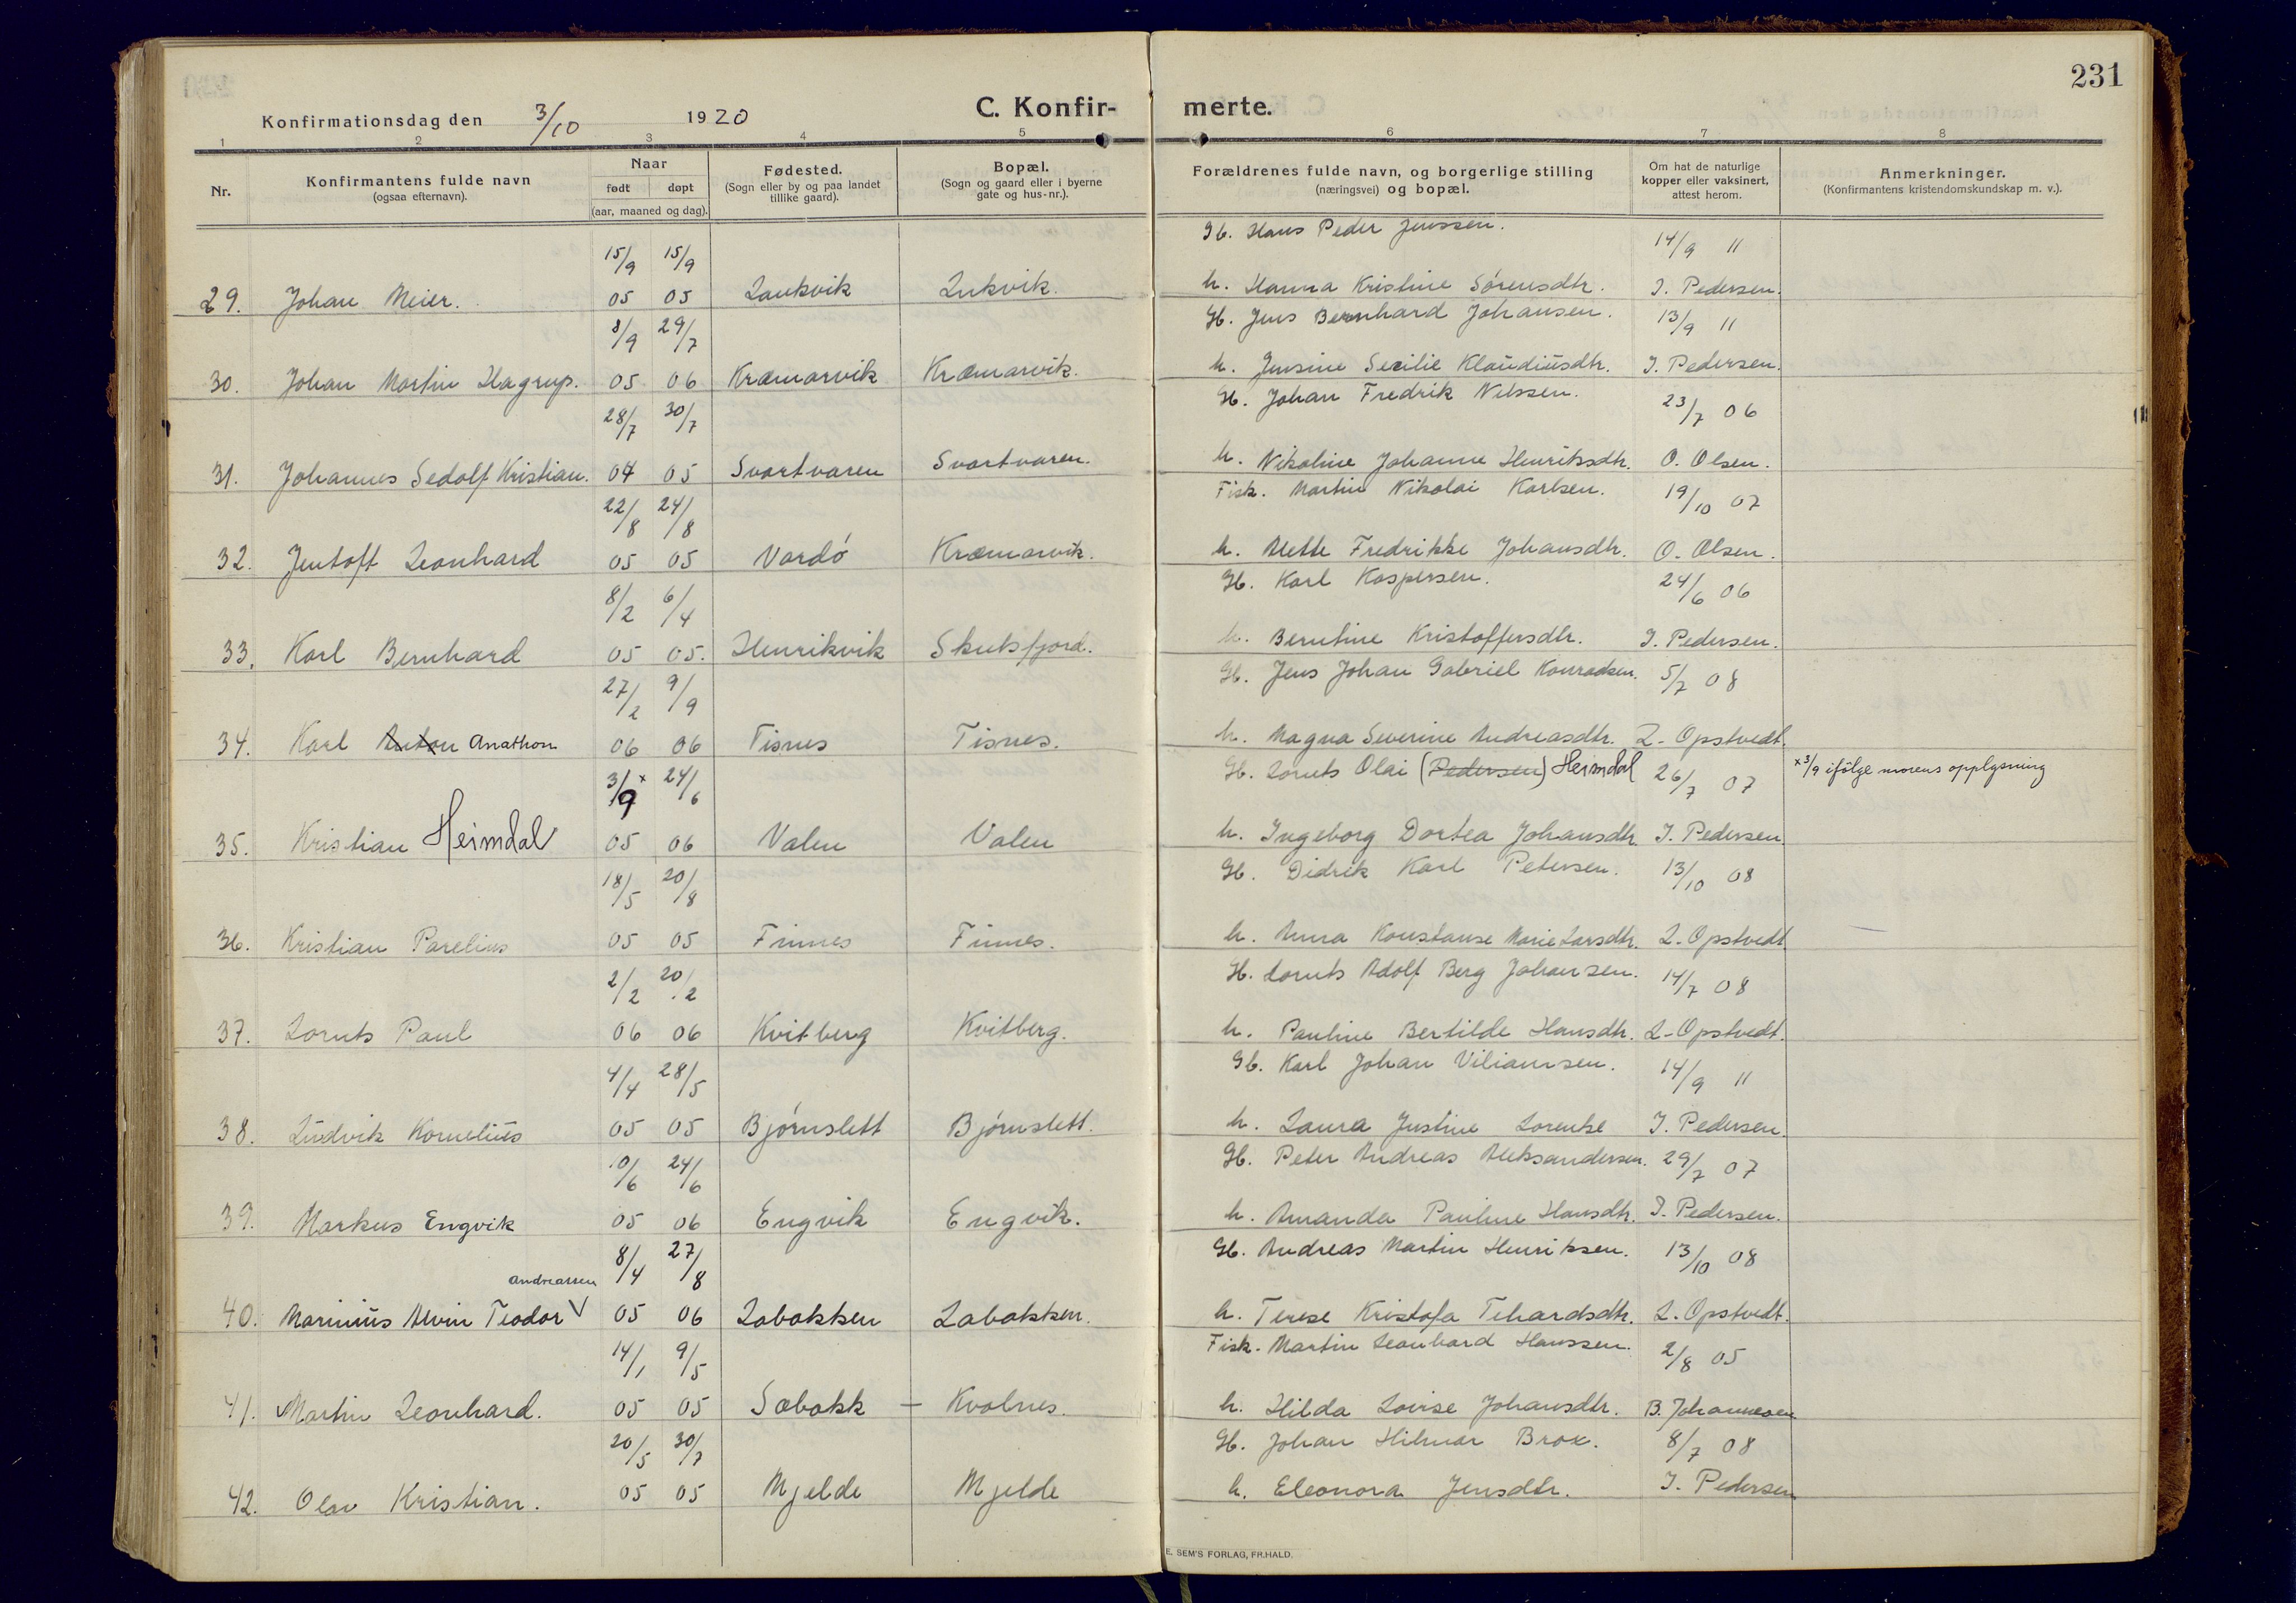 231
Konfirmationsdag den 3/10 1920
C. Konfir-
merte.
1 2 3 4 5 6 7 8
Nr.
Konfirmantens fulde navn
(ogsaa efternavn).
Naar
født døpt
(aar, maaned og dag).
Fødested.
(Sogn eller by og paa landet
tillike gaard).
Bopæl.
(Sogn og gaard eller i byerne
gate og hus-nr.).
Forældrenes fulde navn, og borgerlige stilling
(næringsvei) og bopæl.
Om hat de naturlige
kopper eller vaksinert,
attest herom.
Anmerkninger.
(Konfirmantens kristendomskundskap m. v.).
15/9 15/9 Gb. Hans Peder Jenssen. 14/9 11
29. Johan Meier. 05 05 Laukvik Lukvik. h. Hanna Kristine Sørensdtr. I. Pedersen.
8/9 29/7 Gb. Jens Bernhard Johansen. 13/9 11
30. Johan Martin Hagrup. 05 06 Kræmarvik Kræmarvik. h. Jensine Secilie Klaudiusdtr. I. Pedersen.
28/7 30/7 Gb. Johan Fredrik Nilssen. 23/7 06
31. Johannes Sedolf Kristian. 04 05 Svartvaren Svartvaren. h. Nikoline Johanne Henriksdtr. O. Olsen.
22/8 24/8 Fisk. Martin Nikolai Karlsen. 19/10 07
32. Jentoft Leonhard 05 05 Vardö Kræmarvik. h. Alette Fredrikke Johansdtr. O. Olsen.
8/2 6/4 Gb. Karl Kaspersen. 24/6 06
33. Karl Bernhard 05 05. Henrikvik Skulsfjord. h. Berntine Kristoffersdtr. I. Pedersen.
27/2 9/9 Gb. Jens Johan Gabriel Konradsen. 5/7 08
34. Karl Anton Anathon 06 06 Tisnes Tisnes. h. Magna Severine Andreasdtr. L. Opstvedt.
3/9 x 24/6 Gb. Loruts Olai (Pedersen) Heimdal 26/7 07 x 3/9 ifölge morens opplysning
35. Kristian Heimdal 05 06 Valen Valen h. Ingeborg Dortea Johansdtr. I. Pedersen.
18/5 20/8 Gb. Didrik Karl Petersen. 13/10 08
36. Kristian Parelius 05 05 Finnes Finnes. h. Anna Konstanse Marie Larsdtr. L. Opstvedt
2/2 20/2 Gb. Loruts Adolf Berg Johansen. 14/7 08
37. Loruts Paul 06 06 Kvitberg Kvitberg. h. Pauline Bertilde Hansdtr. L. Opstvedt.
4/4 28/5 Gb. Karl Johan Viliamsen. 14/9 11
38. Ludvik Kornelius 05 05 Bjørnslett Bjørnslett. h. Laura Justine Lorentse I. Pedersen.
10/6 24/6 Gb. Peter Andreas Aleksandersen. 29/7 07
39. Markus Engvik 05 06 Engvik Engvik. h. Amanda Pauline Hansdtr. I. Pedersen.
Andreassen 8/4 27/8 Gb. Andreas Martin Henriksen. 13/10 08
40. Marinius Alvin Teodor V 05 06 Labakken Labakken. h. Terese Kristofa Tehardsdtr. L. Opstvedt.
14/1 9/5 Fisk. Martin Leonhard Hanssen. 2/8 05
41. Martin Leonhard. 05 05 Sæbakk – Kvalnes. h. Hilda Lovise Johansdtr. B. Johannesen
20/5 30/7 Gb. Johan Hilmar Brox. 8/7 08
42. Olav Kristian. 05 05 Mjelde Mjelde h. Eleonora Jensdtr. I. Pedersen
E. SEM'S FORLAG, FR.HALD.